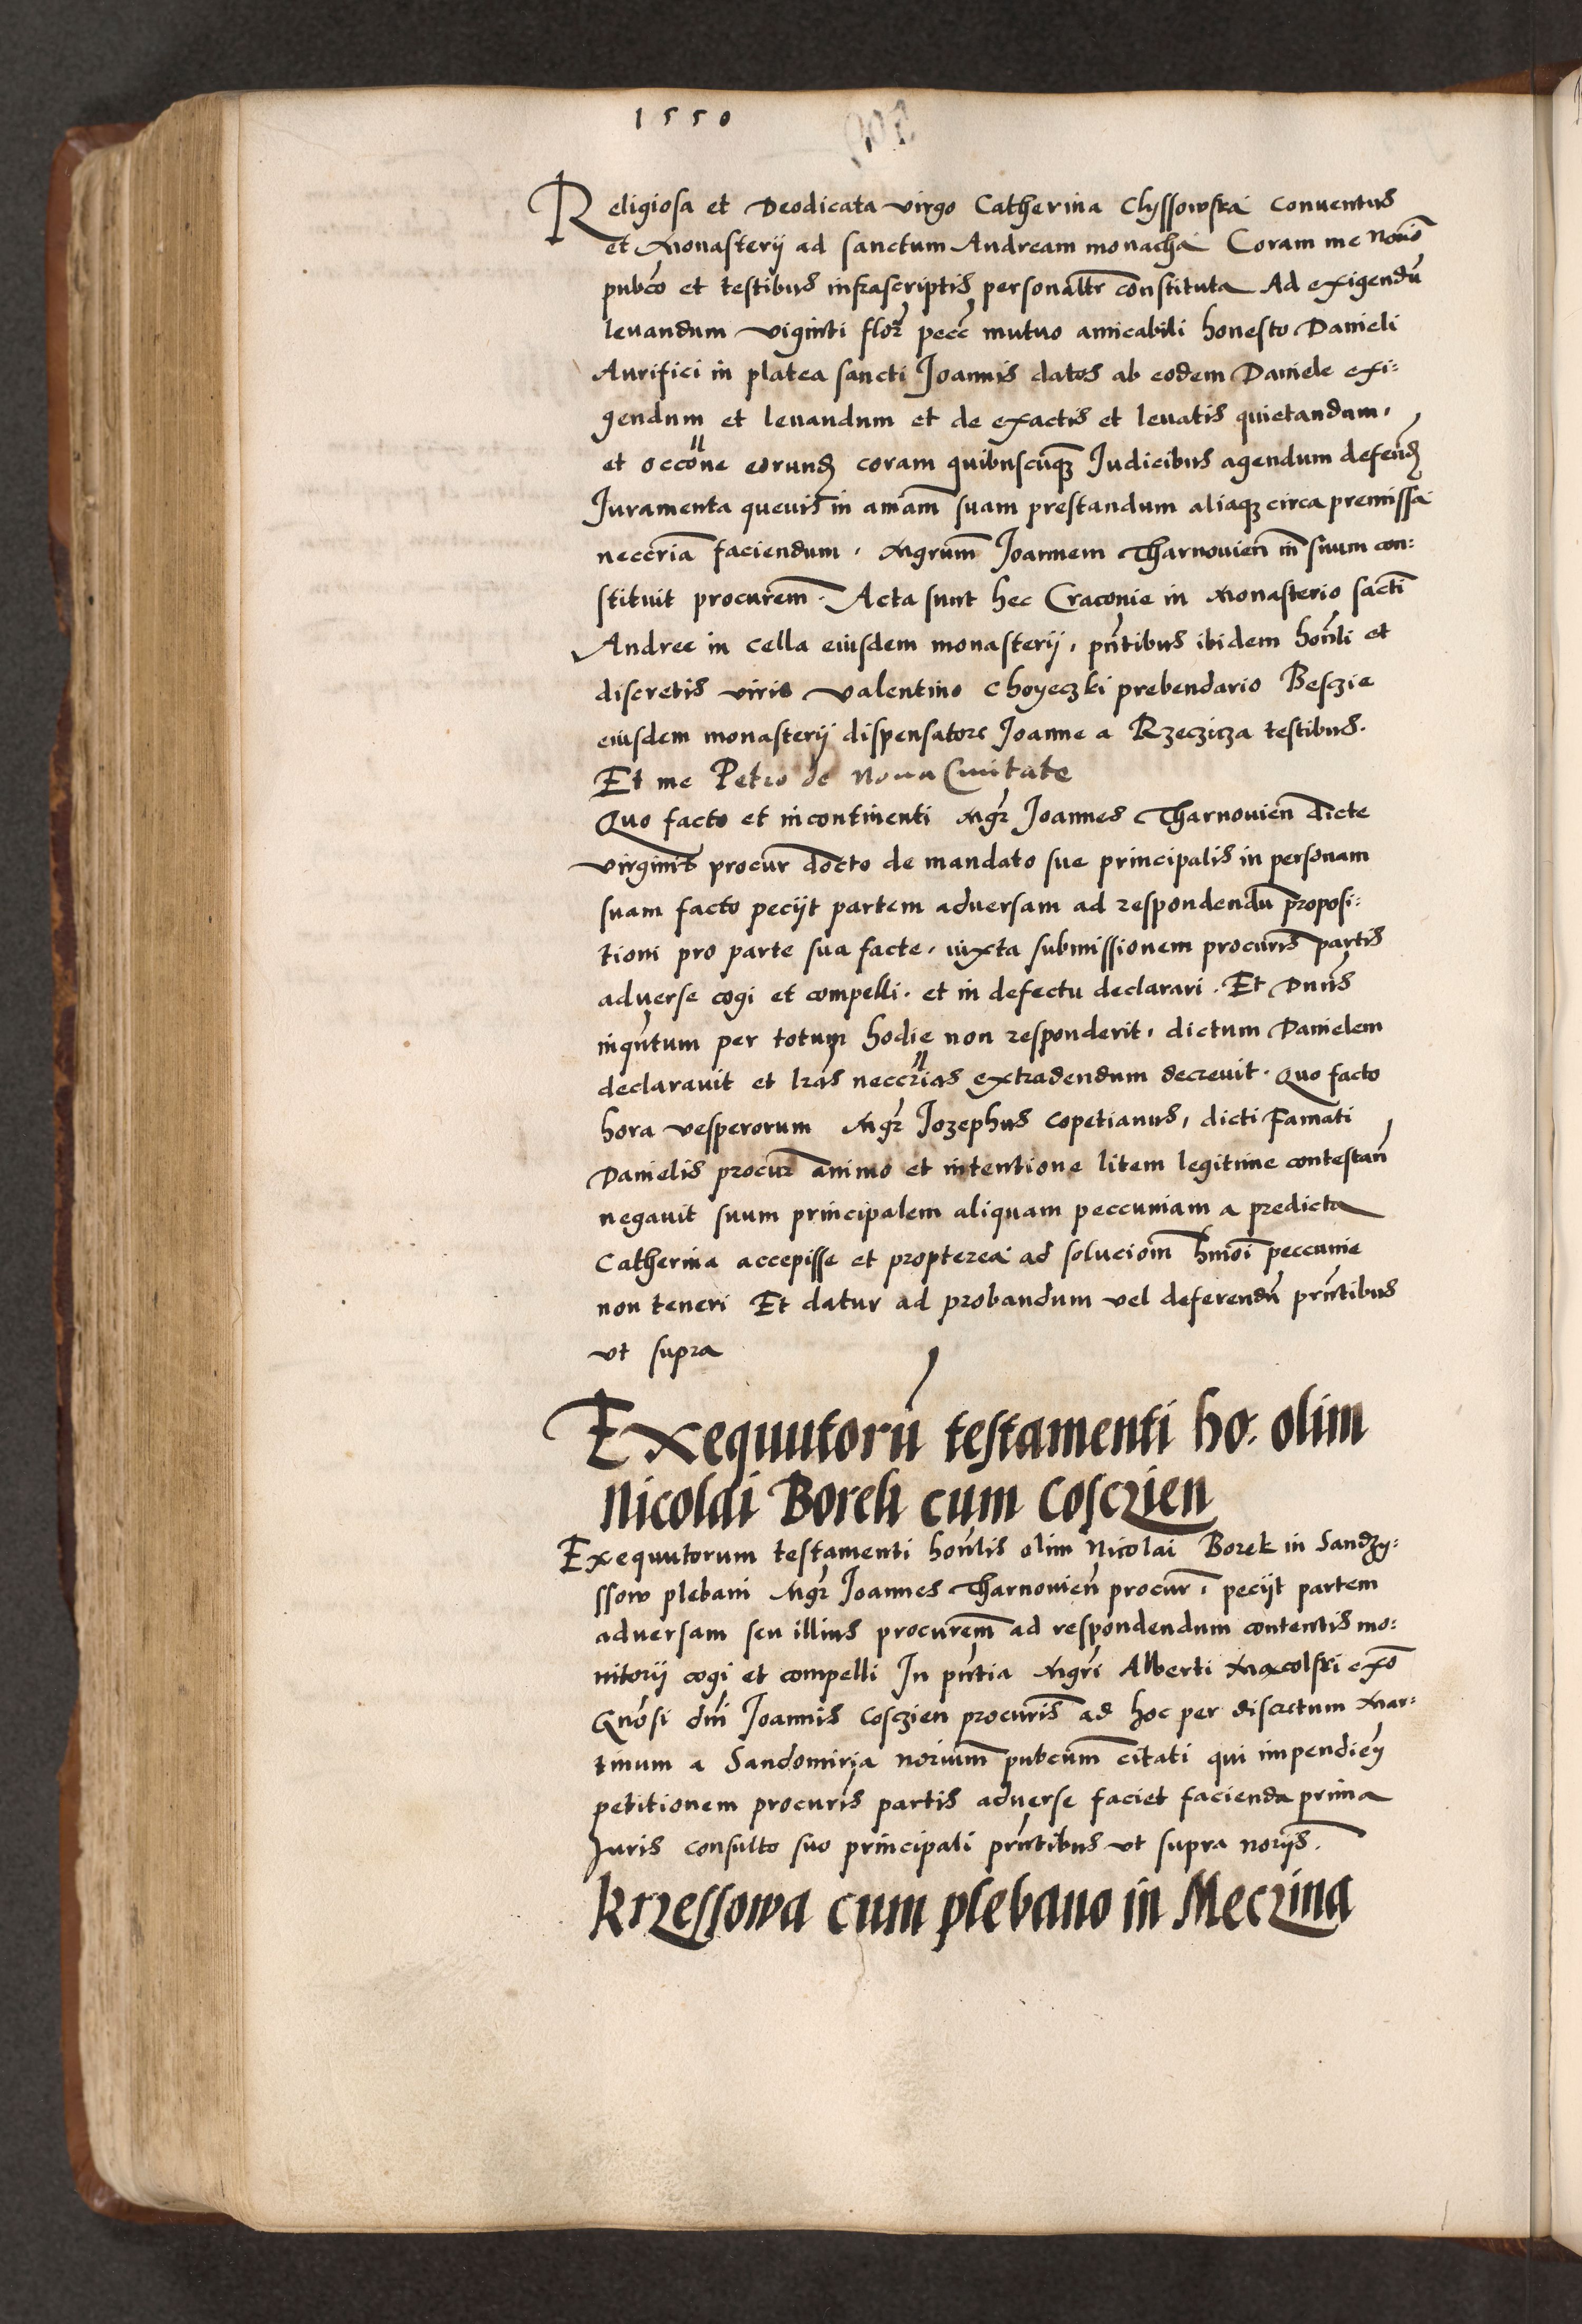 1550
Religiosa et Deodicata virgo Catherina Clyssowska conuentus
et Monasterij ad sanctum Andream monacha Coram me Notrio
pubco et testibus infrascriptis personaltr constituta Ad exigendū
leuandum viginti flor pecc mutuo amicabili honesto Danieli
Aurifici in platea sancti Joannis datos ab eodem Daniele exi:
gendum et leuandum et de exactis et leuatis quietandum,
et occōne eorund coram quibuscūqz Judicibus agendum defend
Juramenta queuis in amām suam prestandum aliaqz circa premissa
neccria faciendum, Mgrum Joannem Tharnouien in suum con:
stituit procurem. Acta sunt hec Craconie in Monasterio sacti
Andree in cella eiusdem monasterij, pntibus ibidem honli et
discretis viris Valentino Choyeczki prebendario Besczie
eiusdem monasterij dispensatore Joanne a Rzeczicza testibus.
Et me Petro de Noua Ciuitate
Quo facto et incontinenti Mgr Joannes Tharnouien dicte
virginis procur docto de mandato sue principalis in personam
suam facto pecijt partem aduersam ad respondendū proposi:
tioni pro parte sua facte, iuxta submissionem procuris partis
aduerse cogi et compelli. et in defectu declarari. Et Dnus
inqntum per totum hodie non responderit, dictum Danielem
declarauit et lras neccrias extradendum decreuit. Quo facto
hora vesperorum Mgr Jozephus Copetianus, dicti Famati
Danielis procur animo et intentione litem legitime contestan
negauit suum principalem aliquam peccuniam a predicta
Catherina accepisse et propterea ad soluciom hmoi peccunie
non teneri Et datur ad probandum vel deferendū prntibus
vt supra
Exequutorū testamenti ho: olim
Nicolai Borek cum Cosczien
Exequutorum testamenti honlis olim Nicolai Borek in Sandzy:
ssow plebani Mgr Joannes Tharnouien procur, pecijt partem
aduersam seu illius procurem ad respondendum contentis mo:
nitorij cogi et compelli In pntia Mgri Alberti Maxcolski exo
Gnosi dni Joannis Cosczien procuris ad hoc per discretum Mar:
tinum a Sandomirja norium pubcum citati qui impendien
petitionem procuris partis aduerse faciet facienda prima
Juris consulto suo principali prntibus vt supra norijs.
Krzessowa cum plebano in Meczina